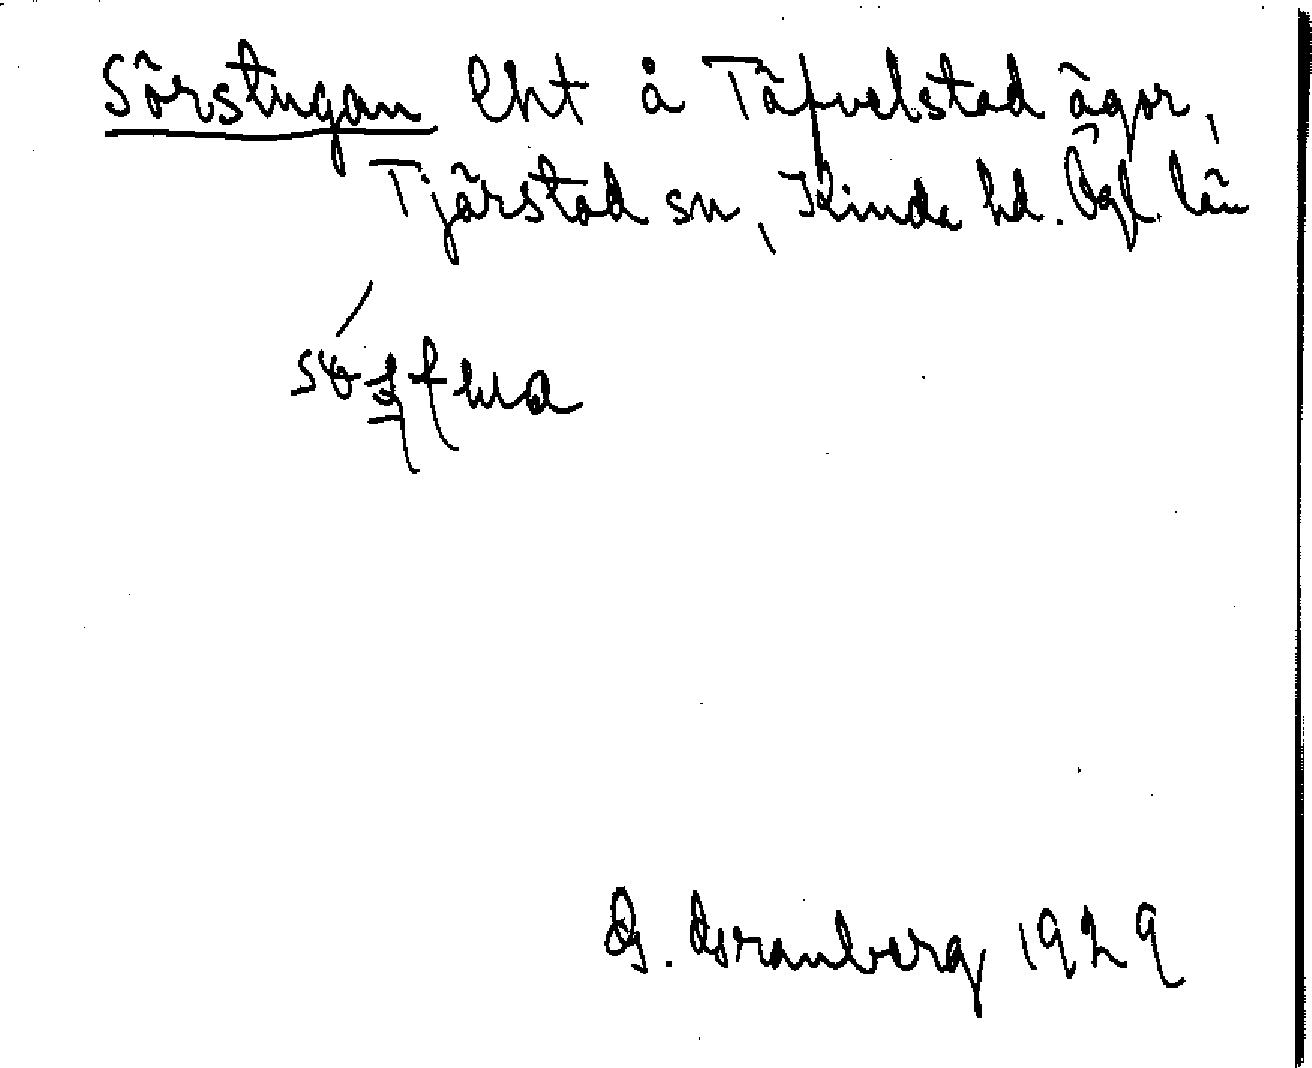 Sörstugan lht å Täfvelstad ägor,
Tjärstad sn, Kinda hd. Ögl. län
G. Granberg 1929